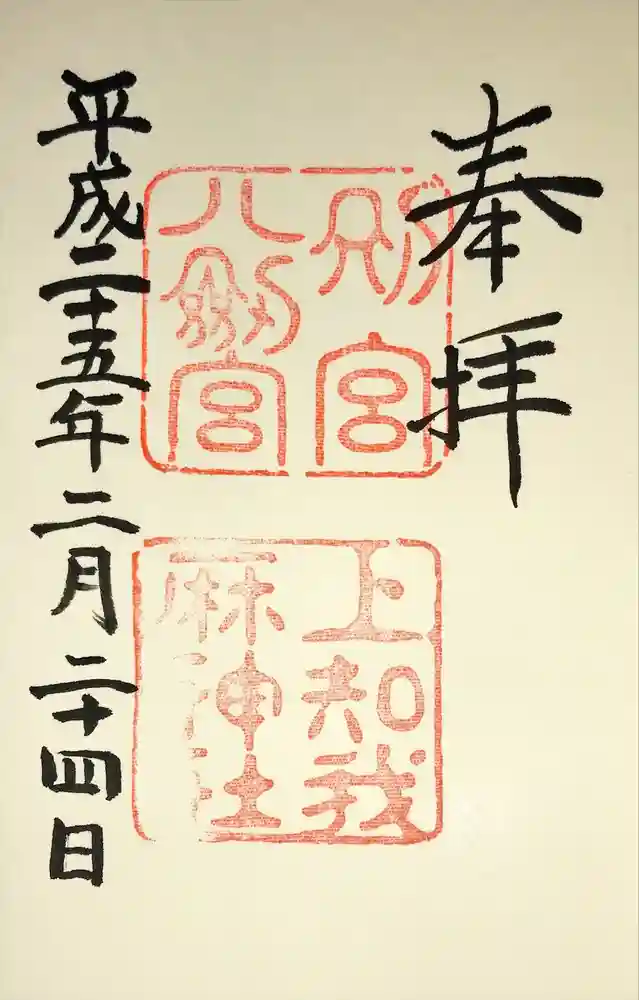 奉拝
別宮
八剱宮
上知我
麻神社
平成二十五年二月二十四日